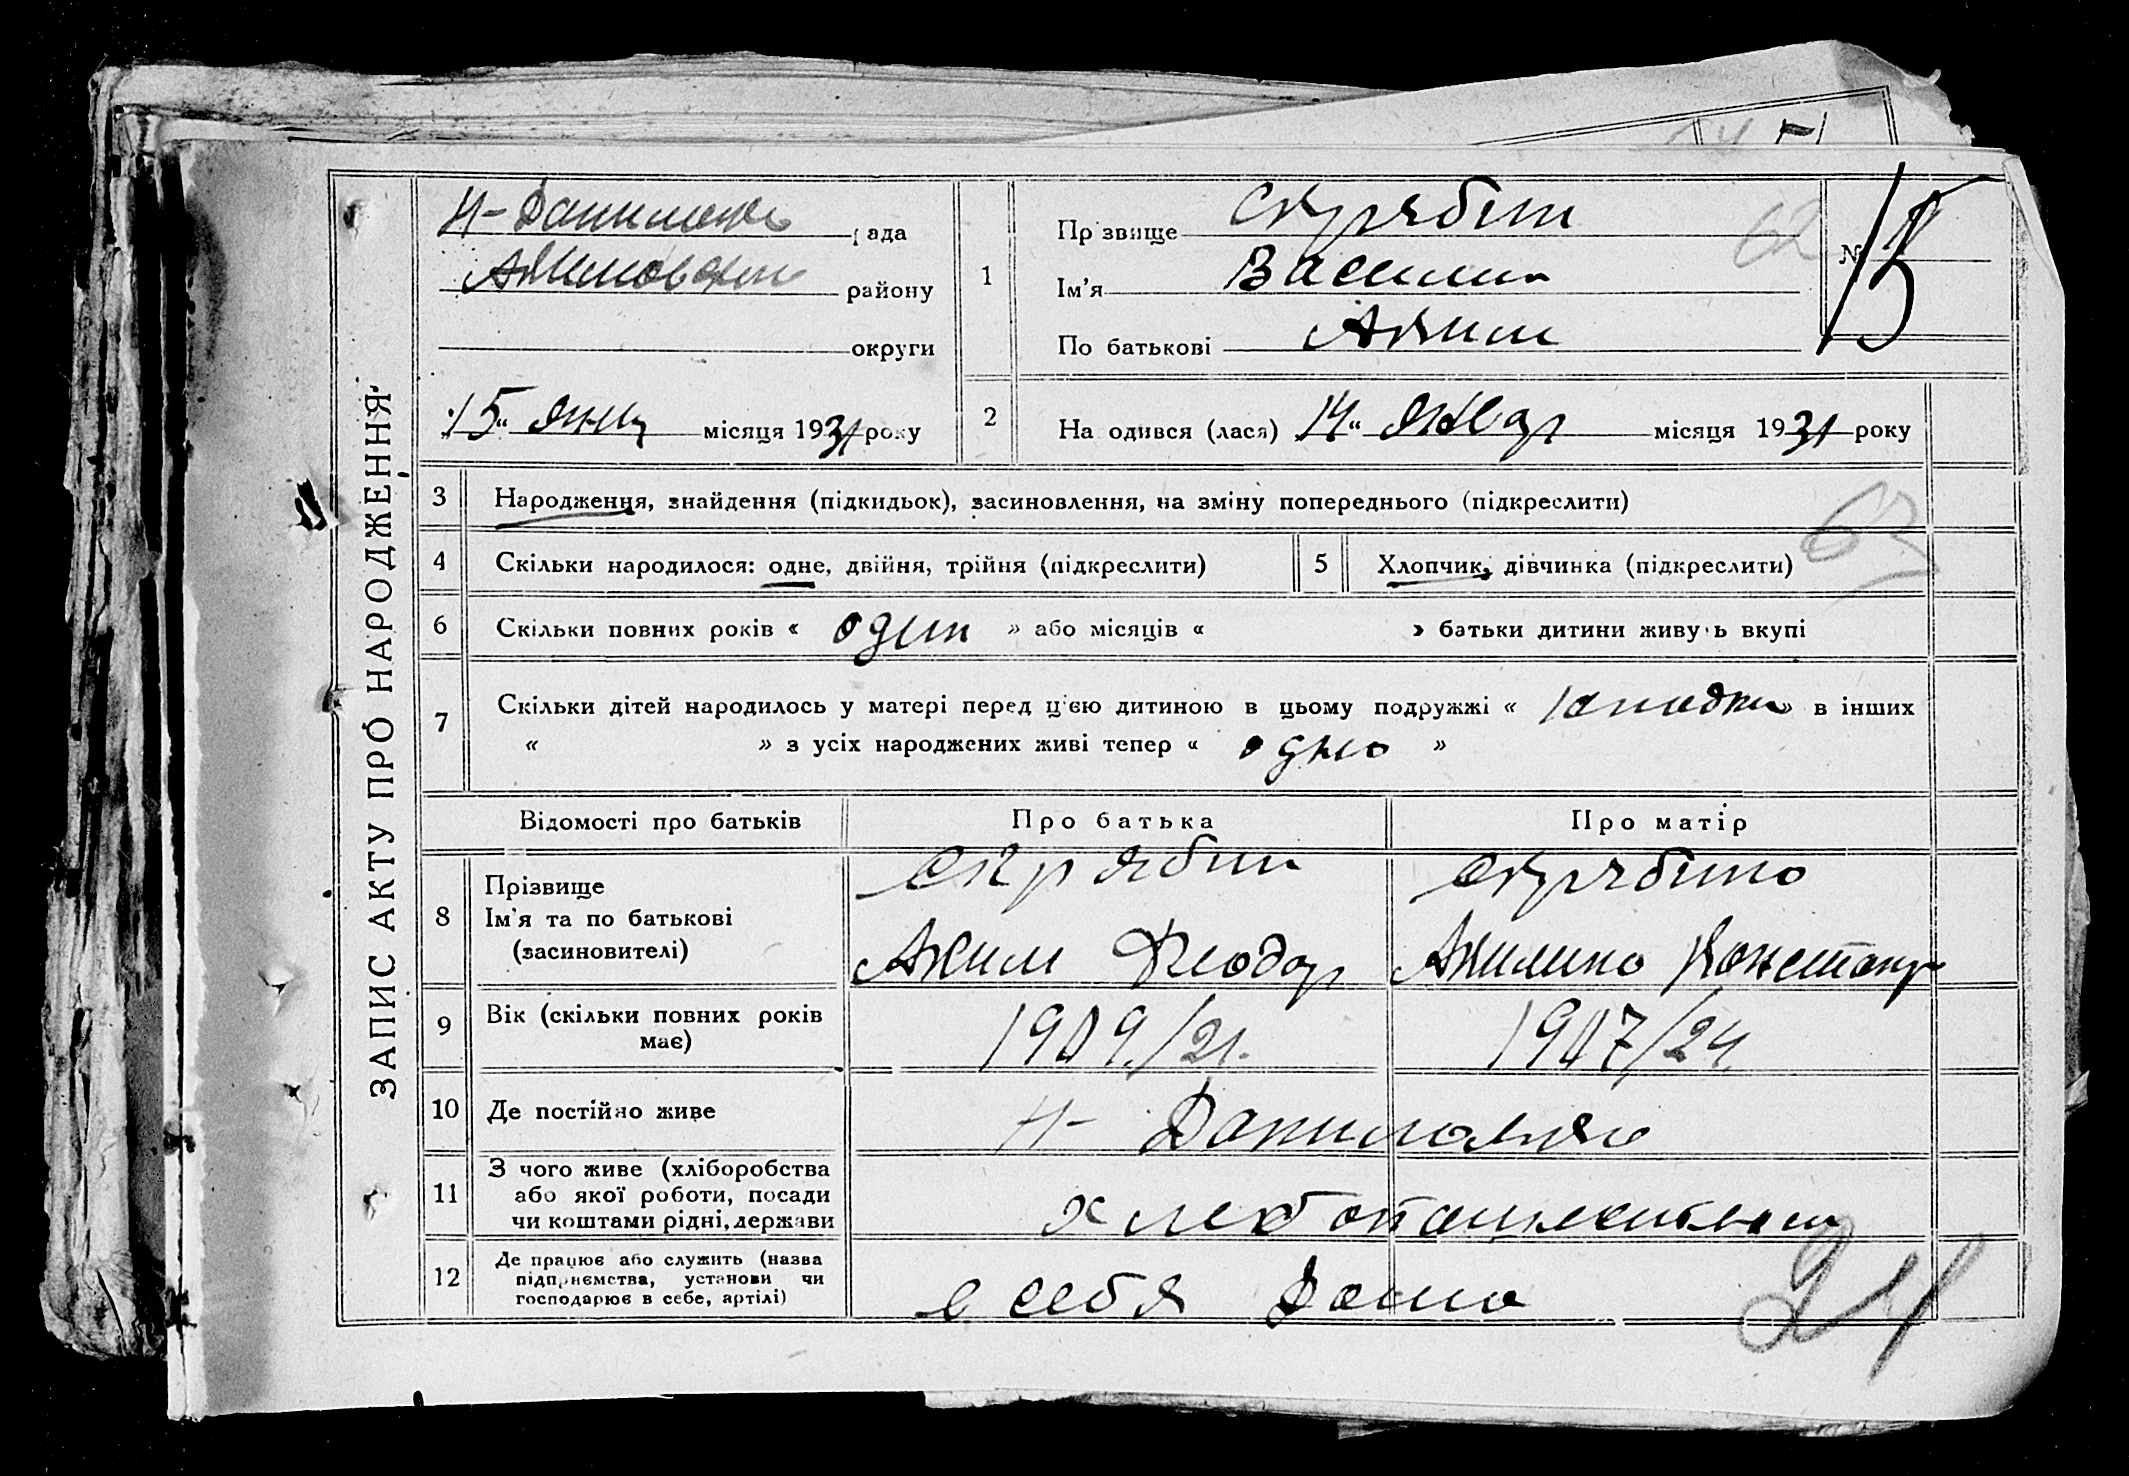 ЗАПИС АКТУ ПРО НАРОДЖЕННЯ
Н-Данилов рада
району
округи
15 янв місяця 1931 року
1
Прізвище Скрябин
Ім'я Василий
По батькові Аким
№ 15
62
2
На одився (лася) 14 январ місяця 1931 року
3 Народження, знайдення (підкидьок), засиновлення, на зміну попереднього (підкреслити)
63
4 Скільки народилося: одне, двійня, трійня (підкреслити) 5 Хлопчик, дівчинка (підкреслити)
6 Скільки повних років « один » або місяців « » батьки дитини живуть вкупі
7 Скільки дітей народилось у матері перед цією дитиною в цьому подружжі « » в інших
« » з усіх народжених живі тепер « одно »
Відомості про батьків Про батька Про матір
8 Прізвище Скрябин Скрябино
Ім'я та по батькові
(засиновителі) Аким Феодор Акилино Констант
9 Вік (скільки повних років
має) 1909/21. 1907/24.
10 Де постійно живе Н-
11 З чого живе (хліборобства
або якої роботи, посади
чи коштами рідні, держави
12 Де працює або служить (назва
підприємства, установи чи
господарює в себе, артілі) в себя дома
24